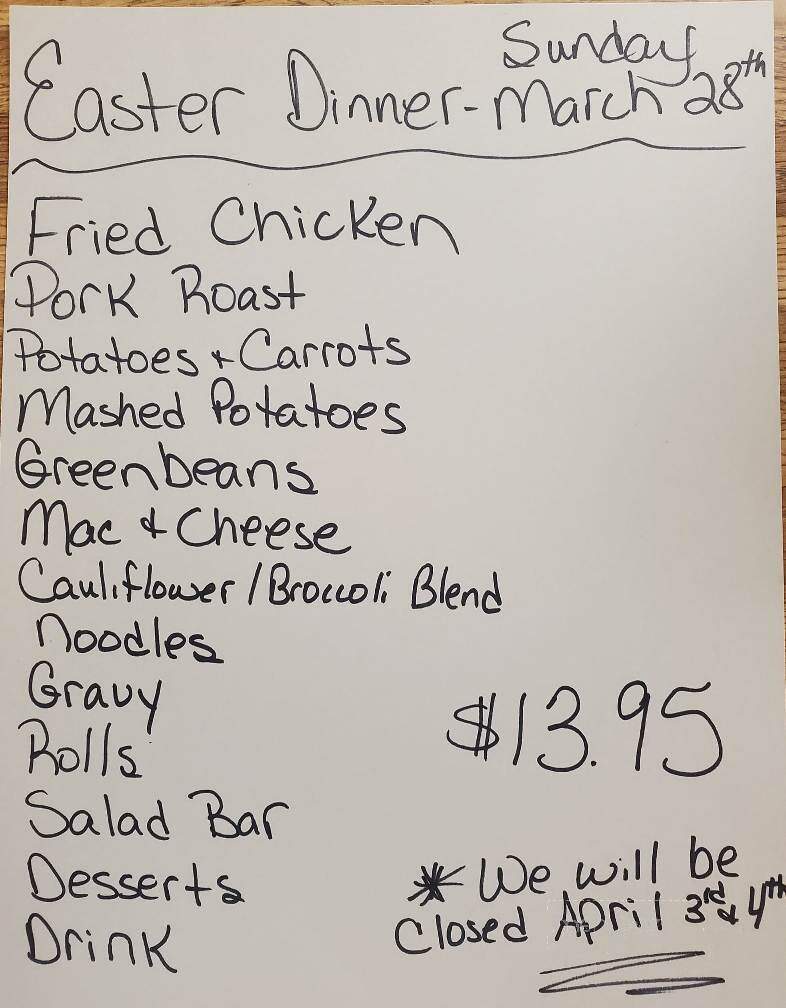 Easter Dinner - Sunday March 28th
Fried Chicken
Pork Roast
Potatoes & Carrots
Mashed Potatoes
Greenbeans
Mac & Cheese
Cauliflower / Broccoli Blend
Noodles
Gravy
Rolls
$13.95
Salad Bar
Desserts
Drink
* We will be
Closed April 3rd & 4th